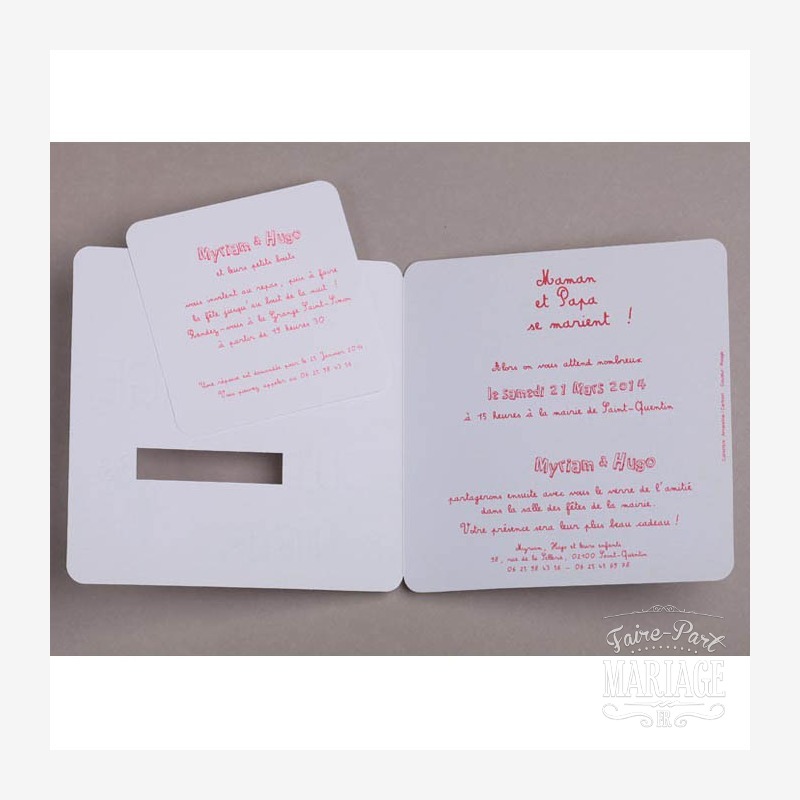 Myriam & Hugo
et leurs petits bouts
vous invitent au repas, puis à faire
la fête jusqu'au bout de la nuit !
Rendez-vous à la Grange Saint-Simon
à partir de 19 heures 30.
Une réponse est demandée pour le 25 Janvier 2014
Vous pouvez appeler au 06 25 98 43 56
Maman
et Papa
se marient !
Alors on vous attend nombreux
le samedi 21 Mars 2014
à 15 heures à la mairie de Saint-Quentin
Myriam & Hugo
partagerons ensuite avec vous le verre de l'amitié
dans la salle des fêtes de la mairie.
Votre présence sera leur plus beau cadeau !
Myriam, Hugo et leurs enfants
98, rue de la Sellerie, 02100 Saint-Quentin
06 25 98 43 56 - 06 25 45 69 78
Faire-Part
MARIAGE
FR